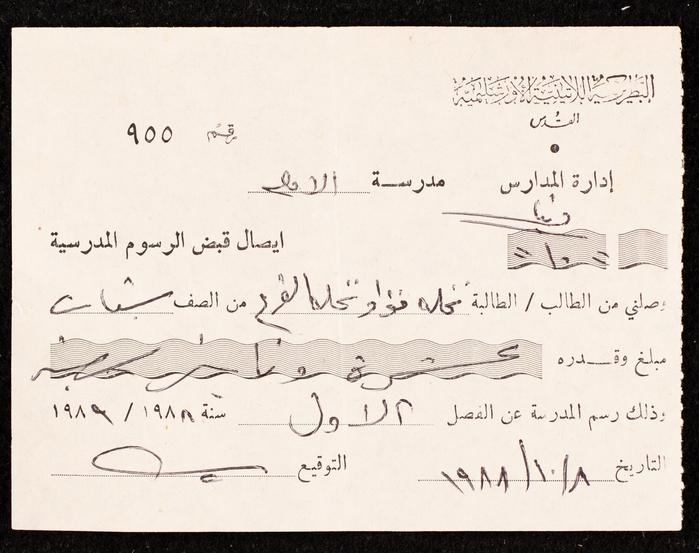 البطريركية اللاتينية الاورشليمية
القدس
رقم ٩٥٥
إدارة المدارس مدرسة
دينار
= ١٠ =
ايصال قبض الرسوم المدرسية
وصلني من الطالب / الطالبة نخله فؤاد نخله القرع من الصف
مبلغ وقدره عشرة دنانير
وذلك رسم المدرسة عن الفصل الاول سنة ١٩٨٨ / ١٩٨٩
التاريخ ١٩٨٨/١٠/٨ التوقيع